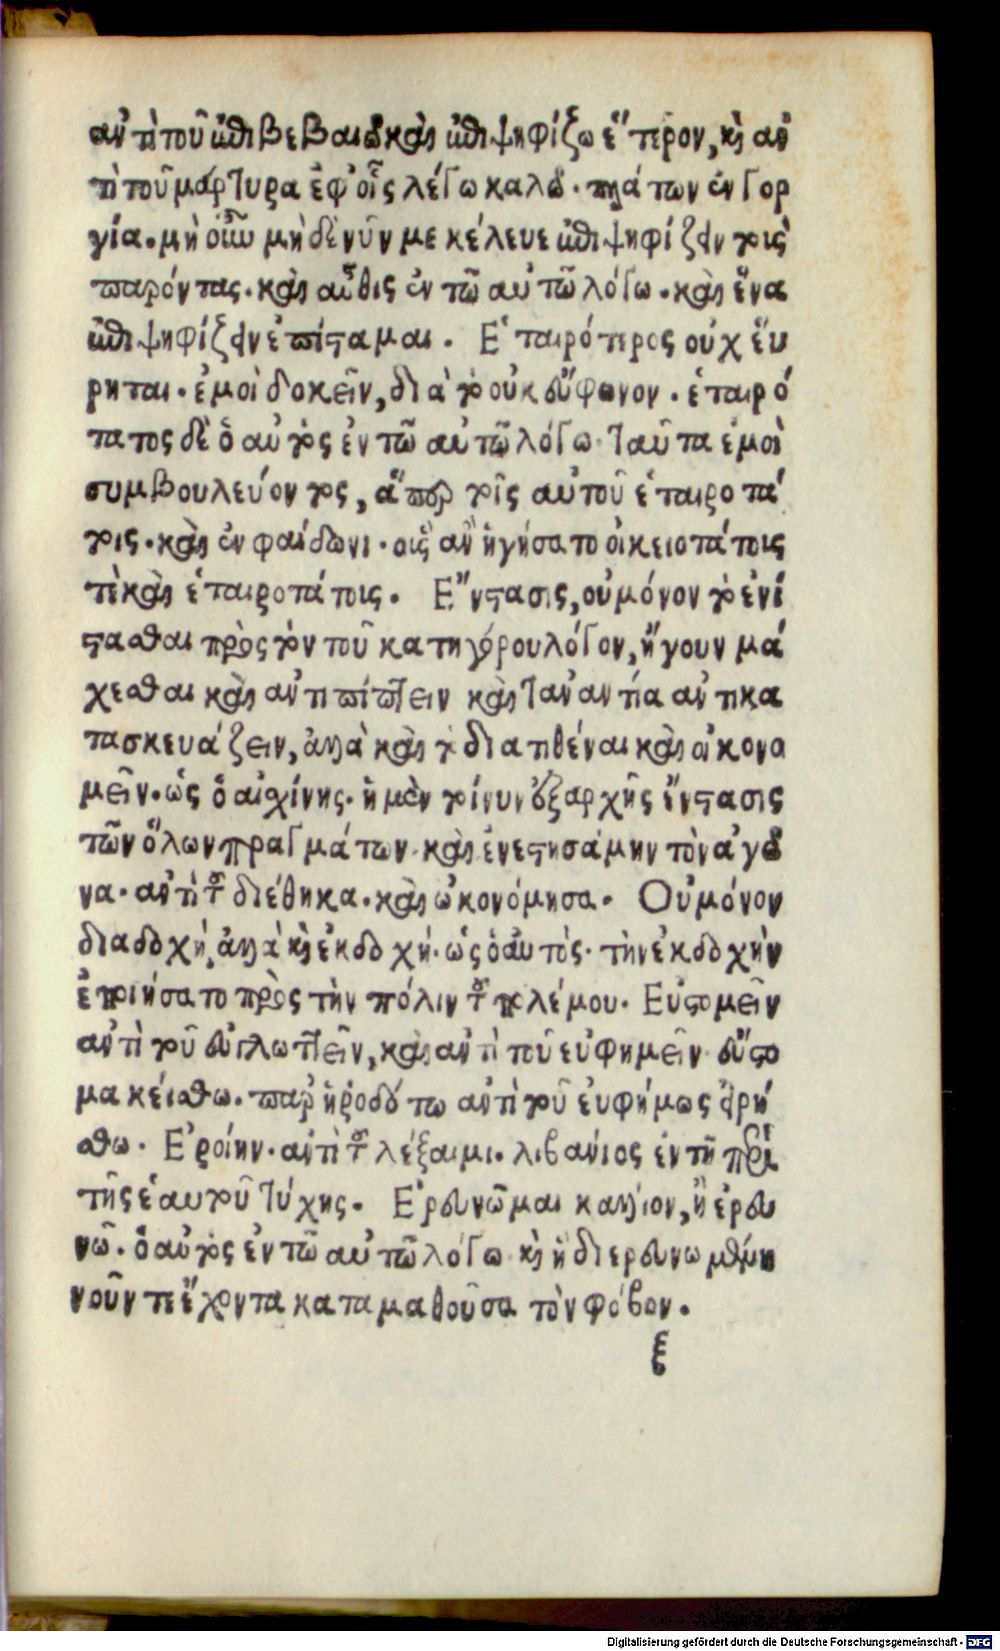 ἀντὶ τοῦ ἐπιβεβαιῶ καὶ ἐπιψηφίζω ἕτερον, καὶ ἀν
τὶ τοῦ μάρτυρα ἐφ' οἷς λέγω καλῶ. πλάτων ἐν Γορ
γία. μὴ οὖν μὴ δὲ νῦν με κέλευε ἐπιψηφίζειν τοὺς
παρόντας. καὶ αὖθις ἐν τῶ αὐτῶ λόγω. καὶ ἕνα
ἐπιψηφίζειν ἐπίσταμαι. Ἑταιρότερος οὐχ εὕ
ρηται. ἐμοὶ δοκεῖν, διὰ τὸ οὐκ εὔφωνον. ἑταιρό
τατος δὲ ὁ αὐτὸς ἐν τῶ αὐτῶ λόγω. Ταῦτα ἐμοὶ
συμβουλεύοντος, ἅπερ τοῖς αὐτοῦ ἑταιροτά
τοις. καὶ ἐν φαίδωνι. οἷς ἂν ἡγήσατο οἰκειοτάτοις
τὲ καὶ ἑταιροτάτοις. Ἔνστασις, οὐ μόνον τὸ ἐνί
στασθαι πρὸς τὸν τοῦ κατηγόρου λόγον, ἤγουν μά
χεσθαι καὶ ἀντιπίπτειν καὶ τἀναντία ἀντικα
τασκευάζειν, ἀλλὰ καὶ τὸ διατιθέναι καὶ οἰκονο
μεῖν. ὡς ὁ αἰσχίνης. ἡ μὲν τοίνυν ἐξαρχῆς ἔνστασις
τῶν ὅλων πραγμάτων. καὶ ἐνεστησάμην τὸν ἀγῶ
να. ἀντὶ τοῦ διέθηκα. καὶ ὠκονόμησα. Οὐ μόνον
διαδοχή, ἀλλὰ καὶ ἐκδοχή. ὡς ὁ αὐτὸς. τὴν ἐκδοχὴν
ἐποιήσατο πρὸς τὴν πόλιν τοῦ πολέμου. Εὐστομεῖν
ἀντὶ τοῦ σιγλωττεῖν, καὶ ἀντὶ τοῦ εὐφημεῖν. εὔστο
μα κείσθω. παρ' ἡροδότω ἀντὶ τοῦ εὐφήμως εἰρή
σθω. Ἐροίην. ἀντὶ τοῦ λέξαιμι. λιβάνιος ἐν τῆ περὶ
τῆς ἑαυτοῦ Τύχης. Ἐρευνῶμαι κάλλιον, ἢ ἐρευ
νῶ. ὁ αὐτὸς ἐν τῶ αὐτῶ λόγω. καὶ ἡ διερευνωμένη
νοῦν τε ἔχοντα καταμαθοῦσα τὸν φόβον.
ξ
Digitalisierung gefördert durch die Deutsche Forschungsgemeinschaft - DFG